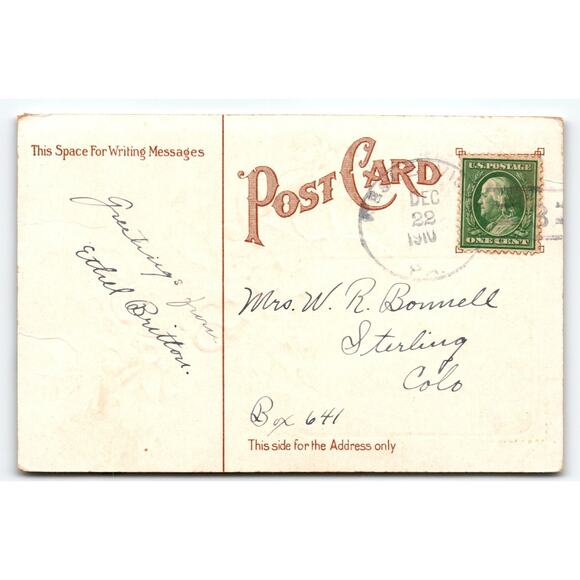 This Space For Writing Messages
POST CARD
U.S. POSTAGE
ONE CENT
DEC
22
1910
Greetings from
Ethel Britton.
Mrs. W. R. Bonnell
Sterling
Colo
Box 641
This side for the Address only